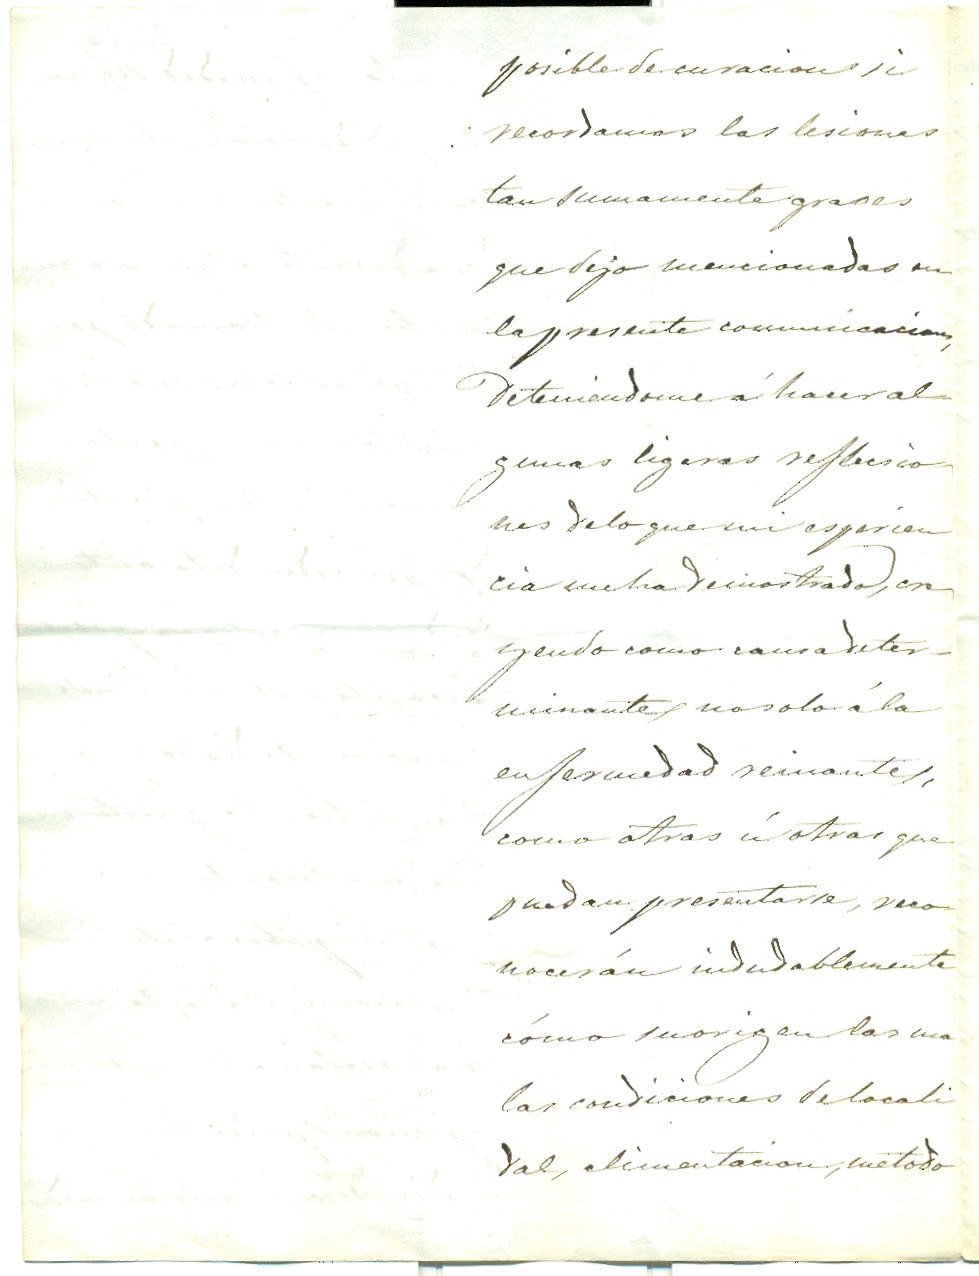 posible de curacion si
recordamos las lesiones
tan sumamente graves
que dejo mencionadas en
la presente comunicacion,
Deteniendome á hacer al-
gunas ligeras reflecsio-
nes de lo que mi esperien
cia me ha demostrado, cre
yendo como causa deter-
minante, no solo á la
enfermedad reinante,
como otras ú otras que
puedan presentarse, reco-
nocerán indudablemente
cómo su origen las ma
las condiciones de locali
dal, alimentacion, metodo